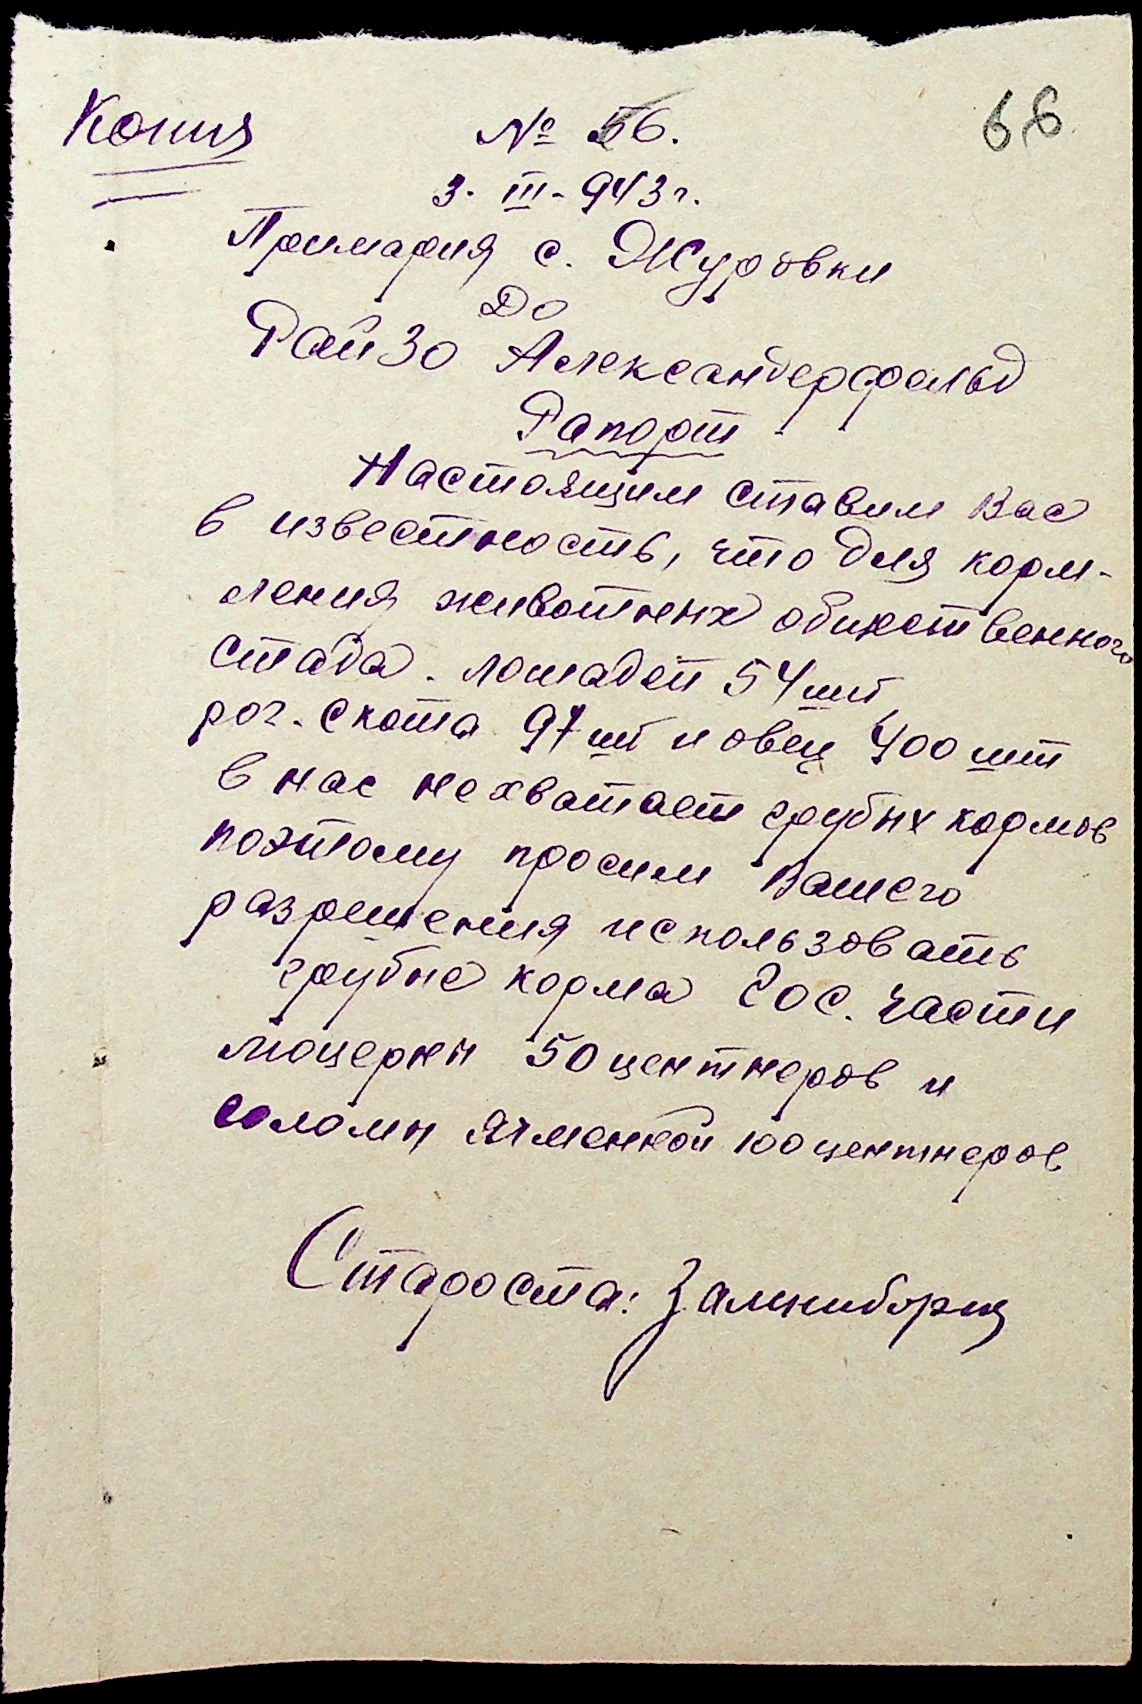 Копия
№ 56.
66
3. III - 943 г.
Примария с. Журовки
До
РайЗО Александерфельд
Рапорт
Настоящим ставим Вас
в известность, что для корм-
ления животных общественного
стада. лошадей 54 шт
рог. скота 97 шт и овец 400 шт
в нас нехватает грубых кормов
поэтому просим Вашего
разрешения использовать
грубые корма Гос. части
люцерны 50 центнеров и
соломы ячменной 100 центнеров
Староста: